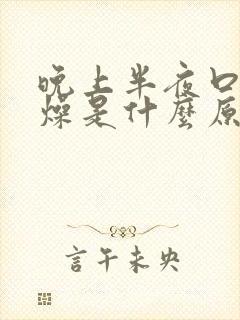 晚上半夜口
燥是什麼原
言午未央